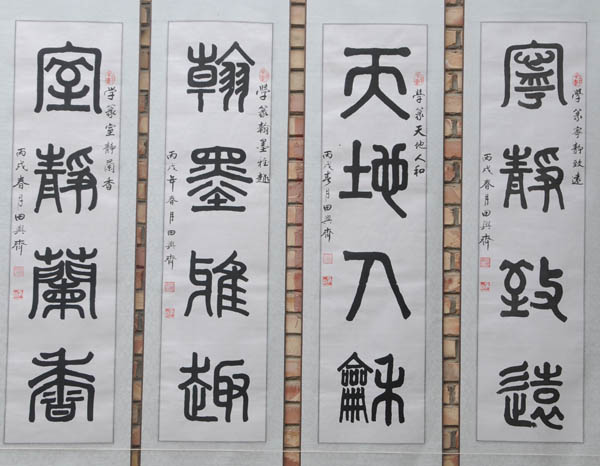 寧靜致遠
学篆寧静致遠
丙戌春月田興齊
天地人龢
学篆天地人和
丙戌春月田興齊
翰墨雅趣
学篆翰墨雅趣
丙戌年春月田興齊
室靜蘭香
学篆室静蘭香
丙戌春月田興齊